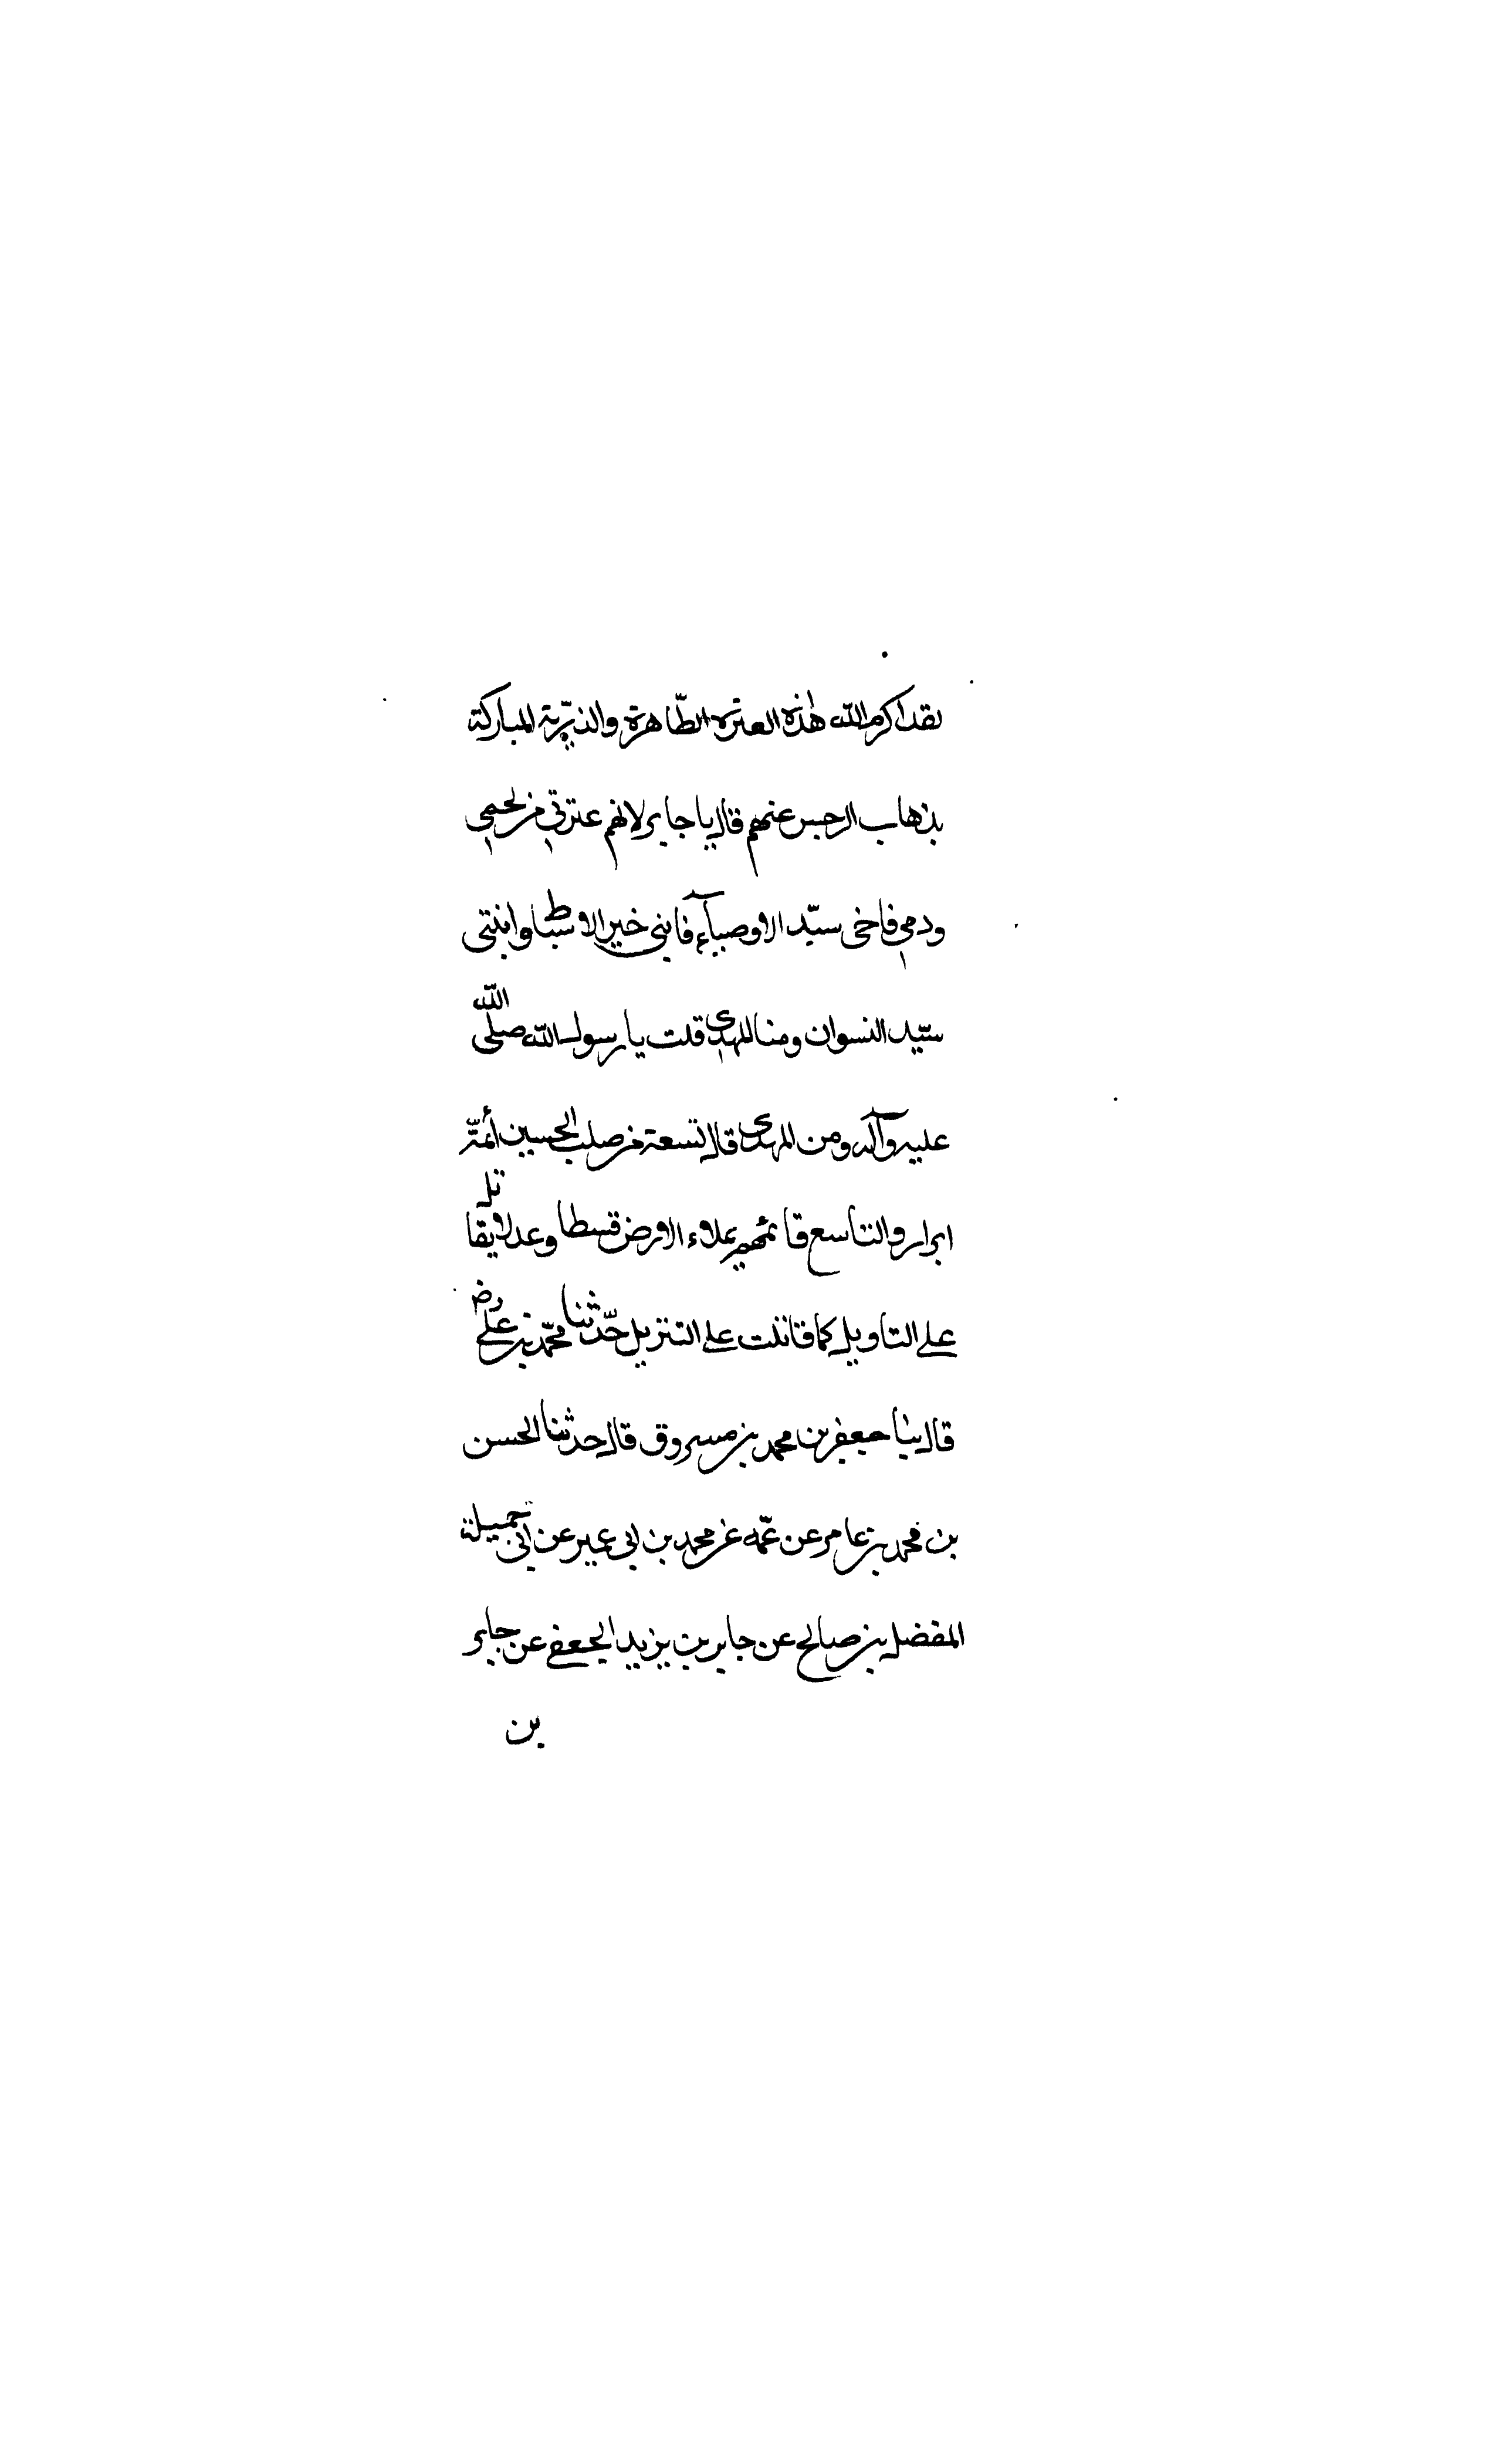 لقد اكرم الله هذه العترة الطّاهرة والذرّية المباركة
بذهاب الرجس عنهم قال يا جابر لانهم عترتي من لحمي
ودمي فاخي سيّد الاوصيآء فابني خير الاسباط وابنتي
سيّد النسوان ومنا المهدي قلت يا رسول الله صلى الله
عليه وآله ومن المهدي قال تسعة من صلب الحسين أئمّة
ابرار والتاسع قائمهم يملاء الارض قسطا وعدلا يقاتل
على التاويل كما قاتلت على التنزيل حدّثنا محمّد بن علي رض
قال ثنا جعفر بن محمد بن مسروق قال حدثنا الحسن
بن محمد بن عامر عن عمّه عن محمد بن ابي عمير عن ابي جميلة
المفضل بن صالح عن جابر بن يزيد الجعفي عن جابر
بن